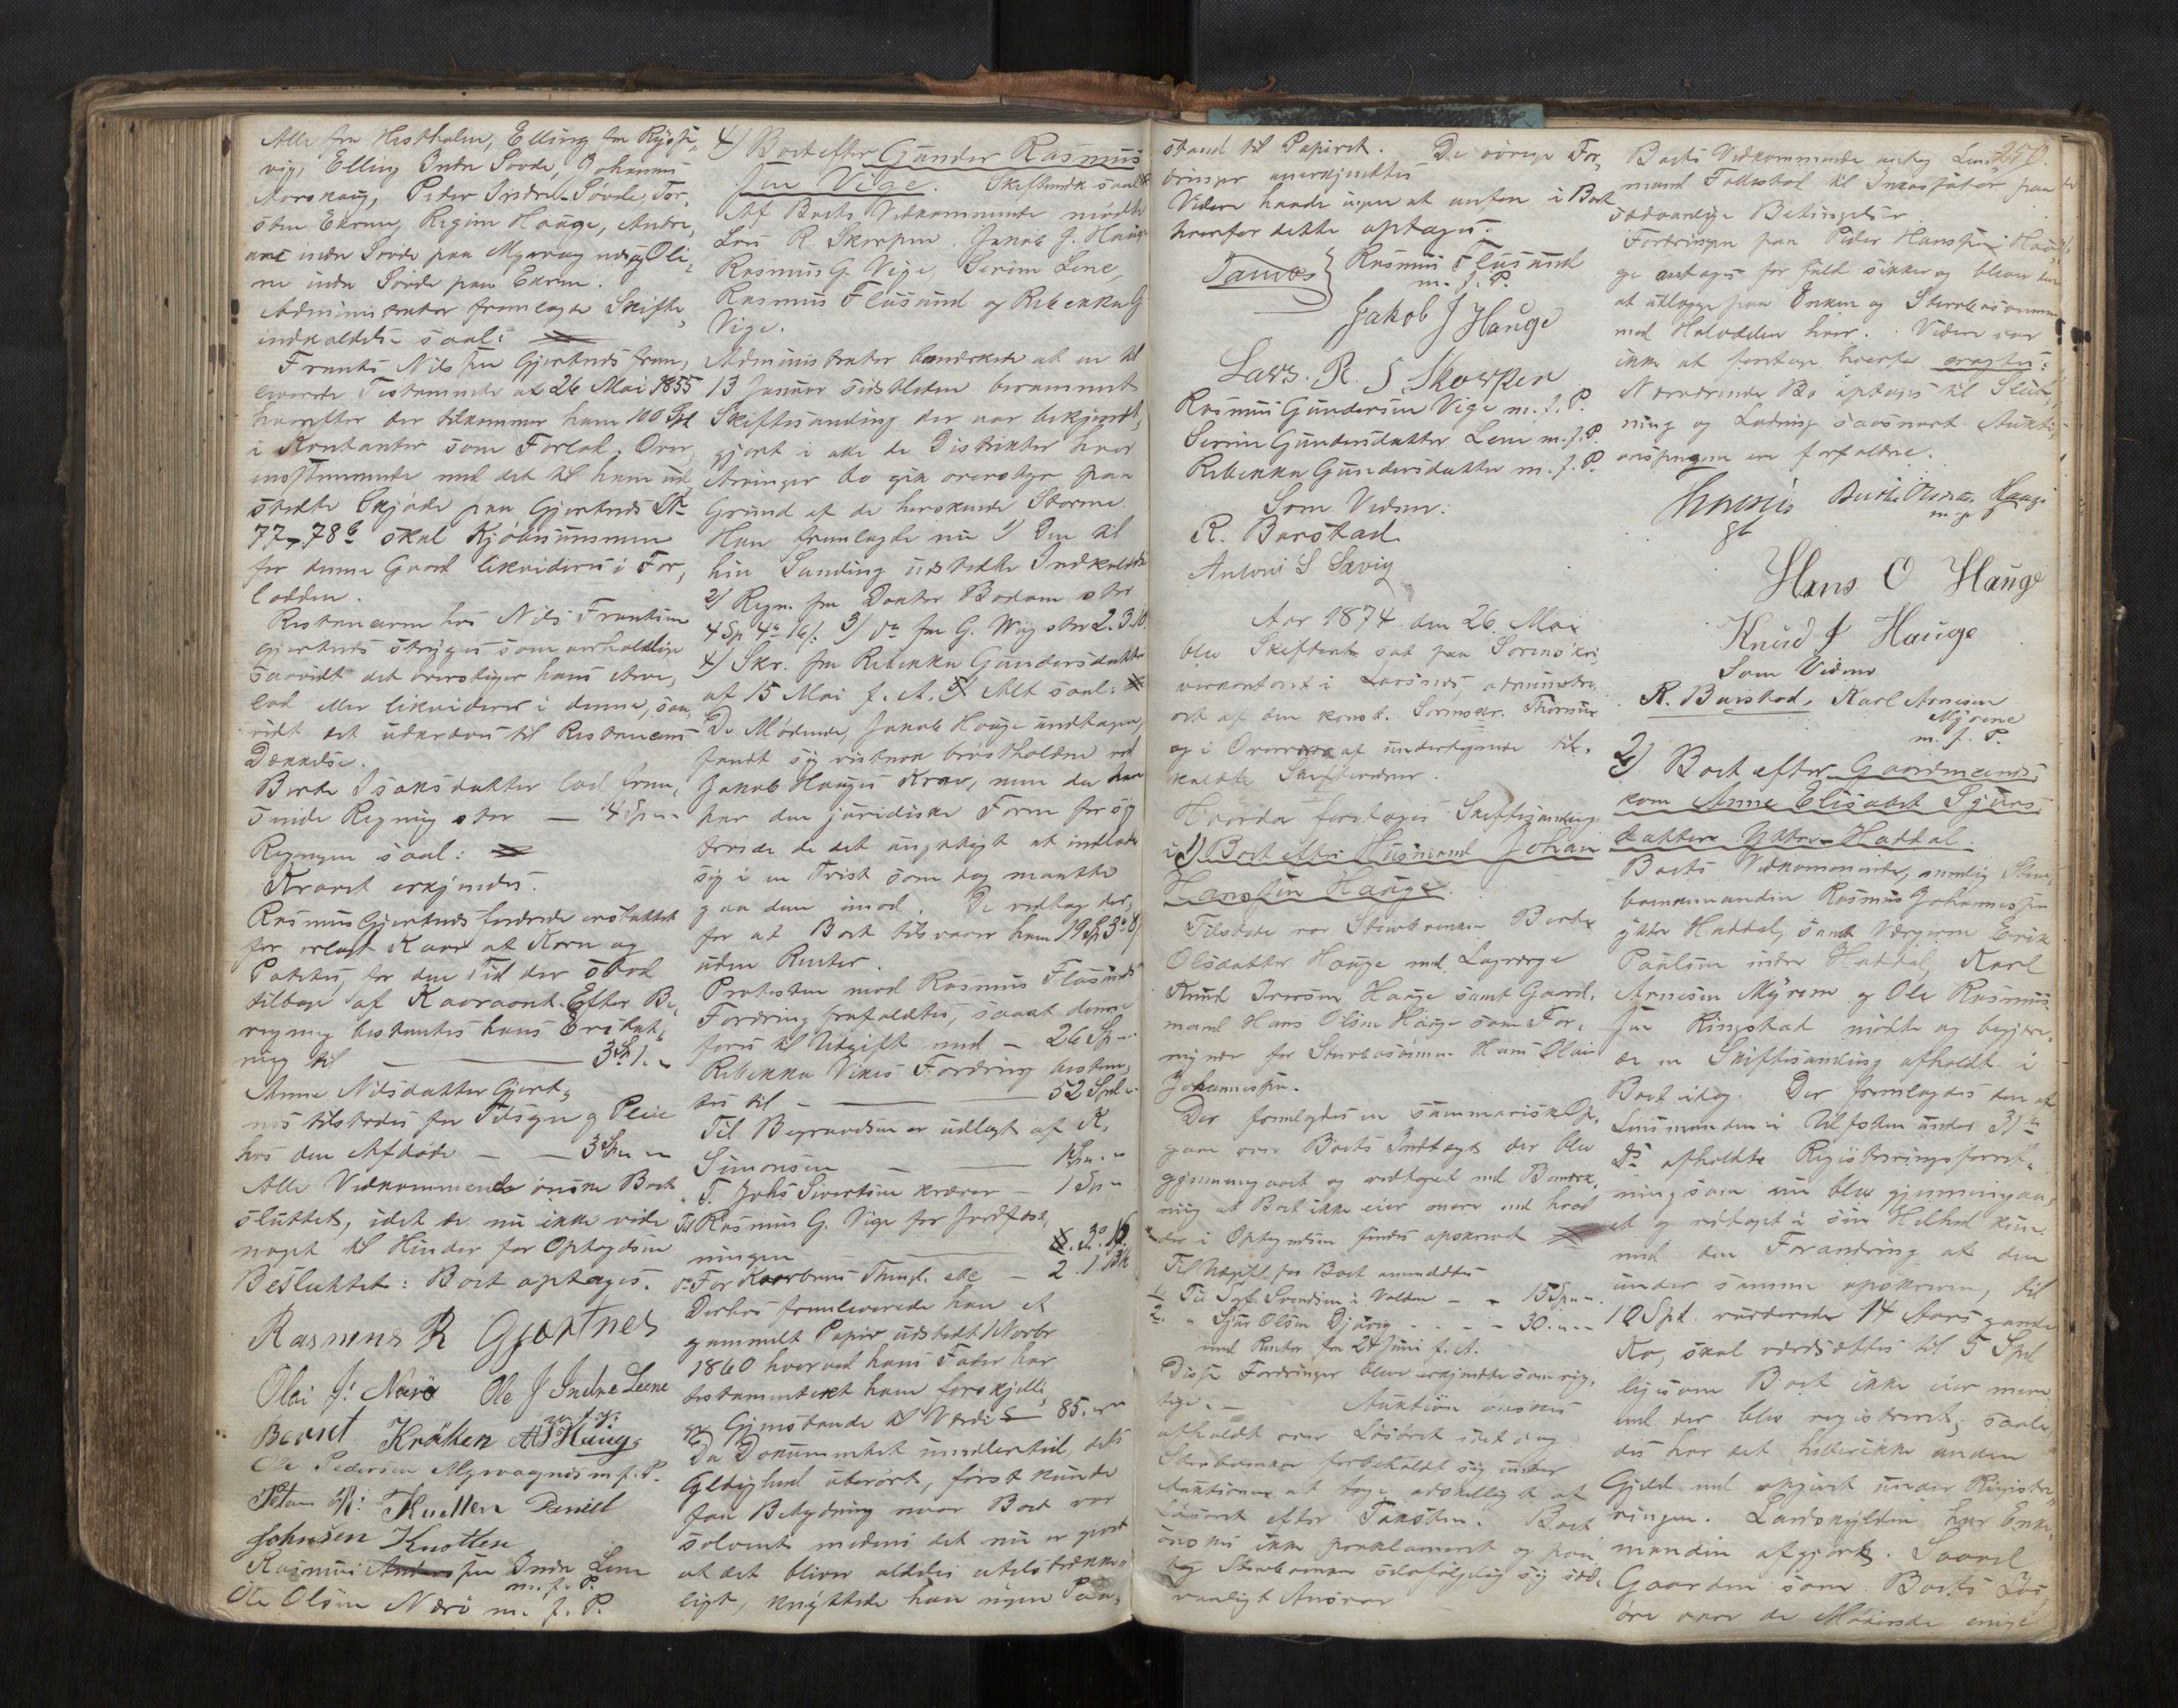 Alle fra Hestholm, Elling fra
vig, Elling Indre Sövde, Johannes
Aarskaug, Peder Indre-Sövde, Tor,
sten Ekrem, Regine Hauge, Andri,
ane indre Sövde paa og Oli,
ne indre Sövde paa Ekrem.
Administrator fremlagde Skifte,
indkaldelse saal:
Frants Nils sen Gjertnes frem,
leverede Testamente af 26 Mai 1855
hvorefter der tilkommer ham 100 Spl
i Kontanter som Forlod. Over,
ensstemmende med det til ham ud,
stedte Skjøde paa Gjertnes
77, 78 skal Kjöbesummen
for denne Gaard likvideres i For,
lodden.
Restancerne hos Nils Frantsen
Gjertnes stryges som uerholdelige
saavidt det overstiger hans Arve,
lod eller likvideres i denne, saa,
vidt det udkræves til Restancens
Dækkelse.
Berte Isaksdatter lod frem,
sende Regning stor — 4 Sp
Regningen saal:
Kravet erkjendes.
Rasmus Gjertnes fordrede erstattet
for erlagt Kaar af Korn og
Poteter, for den Tid der stod
tilbage af Kaaraaret. Efter Be,
regning bestemtes hans Erstat,
ning til — 3 Sp 1.
Anne Nilsdatter Gjert,
nes tilstedes for Tilsyn og Pleie
hos den Afdöde — 3 Sp
Alle Vedkommende önske Boet
sluttet, idet de nu ikke vide
noget til Hinder for Optagelsen
Besluttet: Boet optages.
Rasmus R Gjertnes
Olai J: Nærö Ole J Indre Leene
Bernt Kråken A Haug
Ole Pedersen m. f. P.
Peter Knotten Daniel
Johnsen Knotten
Rasmus Indre Leene
m. f. P.
Ole Olsen Nærö m. f. P.
4) Boet efter Gunder Rasmus
sen Vige. Skifteindk saal:
Af Boets Vedkommende mödte
Lars R. Skorpen. Jakob J. Hauge
Rasmus G. Vige, Serine Lene,
Rasmus Flusund og Rebekka G
Vige.
Administrator bemærkede at en til
13 Januar sidstleden berammet
Skiftesamling der var bekjendt,
gjort i alle de Distrikter hvor
Arvinger bo gik overstyr paa
Grund af de herskende Storme.
Han fremlagde nu 1) Den til
hin Samling udstedte Indkaldelse
2) Regn. fra Doktor Bodom stor
4 Sp 4 16. 3) do fra G. Wiig stor 2. 3. 10.
4) Skr. fra Rebekka Gundersdatter
af 15 Mai f. A. Alt saal:
De Mödende, Jakob Hauge undtagen,
fandt sig vistnok brøstholdne ved
Jakob Hauges Krav, men da han
har den juridiske Form for sig
troede de det unyttigt at indlade
sig i en Trist som dog maatte
gaa dem imod. De vedtog der,
for at Boet tilsvarer ham 19 Sp 3 8
uden Renter.
Protesten mod Rasmus Flusunds
Fordring frafaldtes, saaat denne
føres til Udgift med — 26 Sp
Rebekka Vikes Fordring bestem,
tes til — 52 Spd
Til Begravelsen er udlagt af K.
Simonsen — 1 Sp
T. Johs Sivertsen kræver — 1 Sp
Til Rasmus G. Vige for Jordfæst,
ningen — 3. 16.
For etc — 2. 1
Derhos fremleverede han et
gammelt Papir udstedt
1860 hvorved hans Fader har
testamenteret ham forskjelli,
ge Gjenstande til Værdi 85.
Da Dokumentet imidlertid, dets
Gyldighed uberørt, først kunde
faa Betydning naar Boet var
solvent medens det nu er givet
at det bliver aldeles utilstrække,
ligt, knyttede han ingen Paa,
stand til Papiret. De övrige For,
dringer anerkjendtes
Videre havde ingen at anföre i Boet
hvorfor dette optages.
Rasmus Flusund
m. f. P.
Jakob J Hauge
Lars. R. S Skorpen
Rasmus Gundersen Vige m. f. P.
Serine Gundersdatter Lene m. f. P.
Rebekka Gundersdatter m. f. P.
Som Vidner:
R. Barstad
Antoni S Sævig
Aar 1874 den 26. Mai
blev Skifteret sat paa Sorenskri,
verkontoret i Larsnes, administre,
ret af den konst. Sorenskr.
og i Overvær af undertegnede til,
kaldte Skiftevidner.
Hvorda foretoges Skiftesamling
i 1) Boet efter Husmand Johan
Hanssen Hauge.
Tilstede var Stervboenken Berte
Olsdatter Hauge med Lagværge
Knud Iversen Hauge samt Gaard,
mand Hans Olsen Hauge som For,
mynder for Stervbosönnen Hans Olai
Johannessen.
Der fremlagdes en summarisk Op,
gave over Boets Indtægt der blev
gjennemgaaet og vedtaget med Bemærk,
ning at Boet ikke eier mere end hvad
der i Optegnelsen findes opskrevet
Til Udgift for Boet anmeldtes
1. Til Svendsen i Volden — 15 Sp
2. " Sjur Olsen Djupvig — 30.
med Renter fra 24 Juni f. A.
Disse Fordringer blev erkjendte som rig,
tige. — Auktion önskes
afholdt over Lösöret idet dog
Stervboenken forbeholdt sig under
Auktionen at tage adskilligt af
Lösöret efter Taksten. Boet
önskes ikke proklameret og paa
tog Stervboenken selvfølgelig sig sæd,
vanligt Ansvar
250.
Boets Vedkommende antog Lens
mand Folkestad til Inkassator paa de
sædvanlige Betingelser.
Fordringen paa Peder Hanssen Hau,
ge antages for fuld sikker og bliver den
at udlægge paa Enken og Stervbosönnen
med Halvdelen hver. Videre var
ikke at foretage hvorfor eragtes:
Nærværende Bo optages til Slut,
ning og Lodning saasnart Aukti,
onspengene ere forfaldne.
Berte Olsdatter Hauge
m f P
Hans O Hauge
Knud I Hauge
Som Vidner
R. Barstad, Karl Arnesen
Myrene
m. f. P.
2) Boet efter Gaardmands,
kone Anne Elisabet Sjurs,
datter Ytre-Haddal.
Boets Vedkommende, nemlig Sterv,
boenkemanden Rasmus Johannessen
ytre Haddal, samt Værgerne Erik
Paulsen indre Haddal, Karl
Arnesen Myrene og Ole Rasmus
sen Ringstad mödte og begjære,
de en Skiftesamling afholdt i
Boet idag. Der fremlagdes den af
Lensmanden i Ulfsten under 3)
Ds afholdte Registreringsforret,
ning som nu blev gjennemgaa,
et og vedtaget i sin Helhed kun
med den Forandring at den
under samme opskrevne, til
10 Spd. vurderede 14 Aars gamle
Ko, skal værdsættes til 5 Spd
ligesom Boet ikke eier mere
end der blev registreret, saale,
des har det heller ikke anden
Gjeld end opgivet under Registre,
ringen. Landskylden har Enke,
manden afgjort. Saavel
Gaarden som Boets Lös,
öre vare de Mödende enige